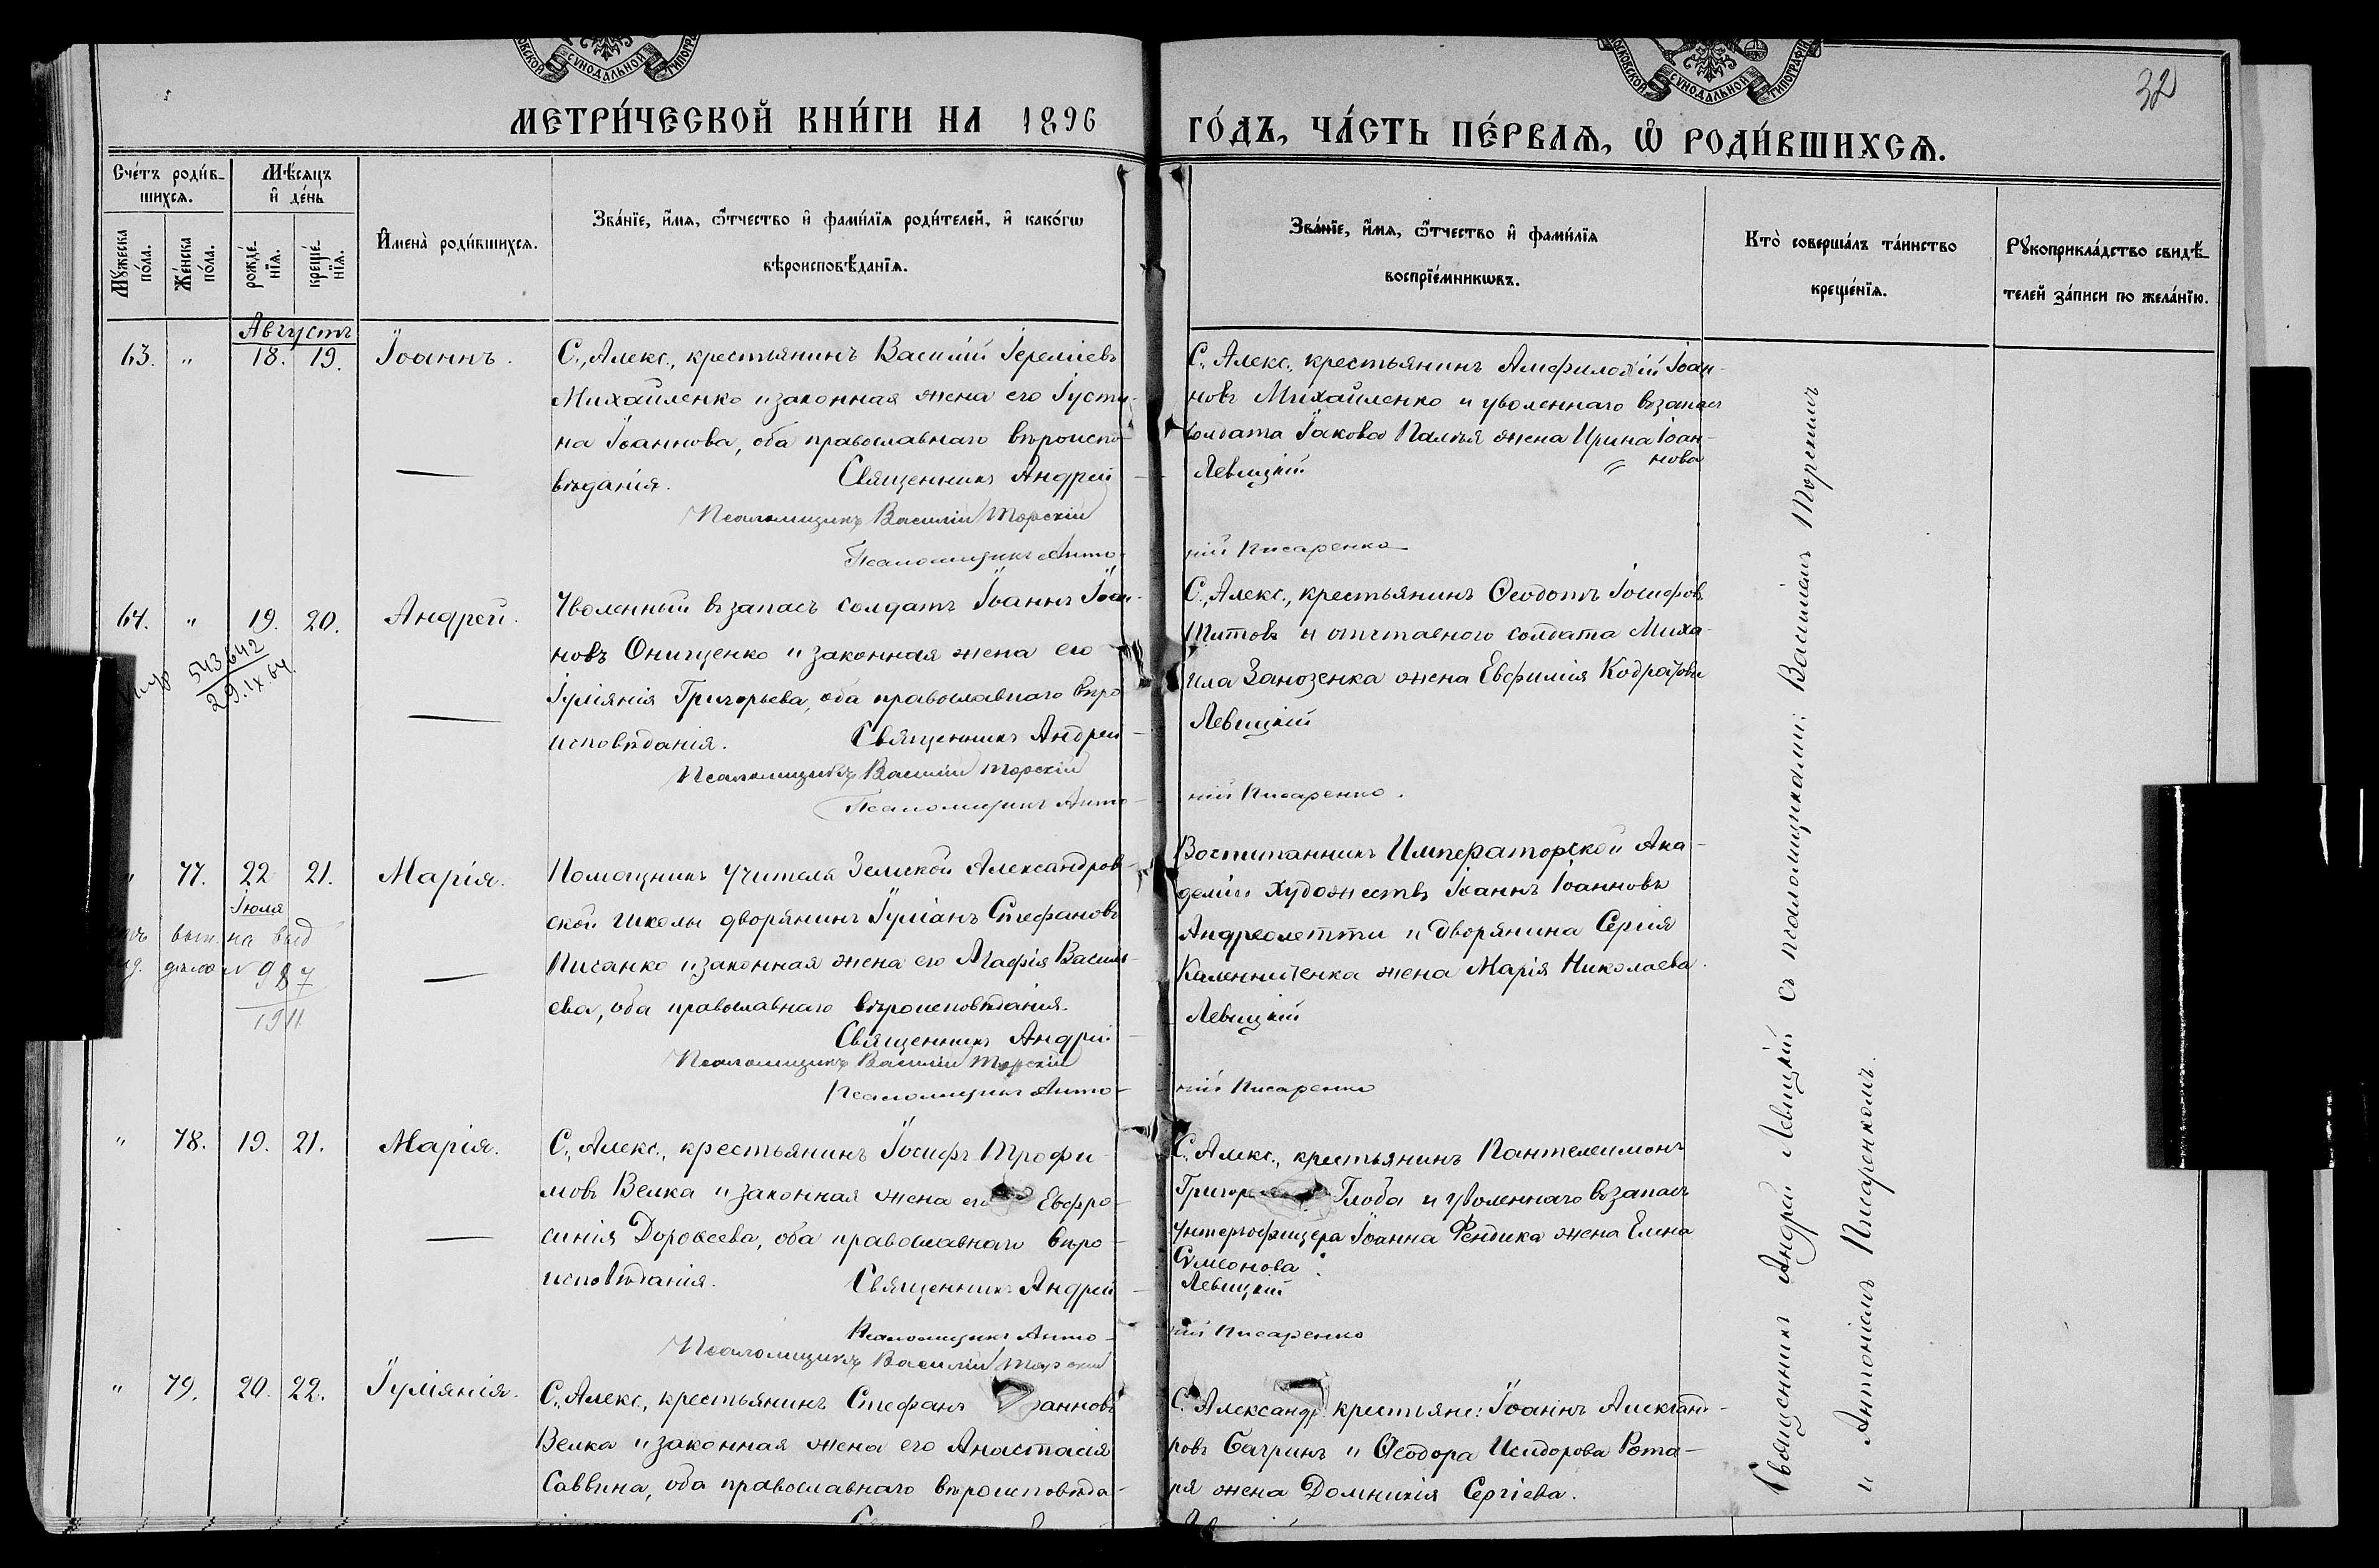 МЕТРИ́ЧЕСКОЙ КНИ́ГИ НА 1896
ГО́ДЪ, ЧА́СТЬ ПЕ́РВАѦ, Ѡ РОДИ́ВШИХСѦ.
32
Сче́тъ роди́в-
шихсѧ.
Мѣ́сѧцъ
и де́нь
Мꙋ́жеска
по́ла.
Же́нска
по́ла.
рожде́-
нїѧ.
креще́-
нїѧ.
Имена̀ роди́вшихсѧ.
Зва́нїе, и́мѧ, ѻ́тчество и фами́лїѧ роди́телей, и како́гѡ
вѣроисповѣ́данїѧ.
Зва́нїе, и́мѧ, ѻ́тчество и фами́лїѧ
воспрїе́мникѡвъ.
Кто̀ соверша́лъ та́инство
креще́нїѧ.
Рꙋкоприкла́дство свидѣ́-
телей за́писи по жела́нїю.
Августъ
63. " 18. 19. Іоаннъ.
С. Алекс., крестьянинъ Василій Іереміевъ
Михайленко и законная жена его Іусти-
на Іоаннова, оба православнаго вѣроиспо-
вѣданія. Священникъ Андрей
Псаломщикъ Василій Торскій
Псаломщикъ Анто-
С. Алекс., крестьянинъ Амфилохій Іоан-
новъ Михайленко и уволеннаго въ запасъ
солдата Іакова жена Ирина Іоан-
нова
Левицкій
ній Писаренко
64. " 19. 20. Андрей.
543642
29.IX.64.
Уволенный въ запасъ солдатъ Іоаннъ Іоан-
новъ Онищенко и законная жена его
Іуліянія Григорьева, оба православнаго вѣро
исповѣданія. Священникъ Андрей
Псаломщикъ Василій Торскій
Псаломщикъ Анто-
С. Алекс., крестьянинъ Ѳеодотъ Іосифовъ
Титовъ и отставного солдата Миха-
ила Занозенка жена Евфимія Кодратова
Левицкій
ній Писаренко.
" 77. 22 21. Марія.
Іюля
вып. на выд
дѣло № 987
1911
Помощникъ учителя Земской Александров-
ской школы дворянинъ Іуліанъ Стефановъ
Писанко и законная жена его Агафія Василь-
ева, оба православнаго вѣроисповѣданія.
Священникъ Андрей
Псаломщикъ Василій Торскій
Псаломщикъ Анто-
Воспитанникъ Императорской Ака-
деміи Художествъ Іоаннъ Іоанновъ
Андреолетти и дворянина Сергія
Каленниченка жена Марія Николаева.
Левицкій
ній Писаренко
" 78. 19. 21. Марія.
С. Алекс., крестьянинъ Іосифъ Трофи-
мовъ Велка и законная жена его Евфро-
синія Дороѳеева, оба православнаго вѣро-
исповѣданія. Священникъ Андрей
Псаломщикъ Анто-
Псаломщикъ Василій Торскій
С. Алекс., крестьянинъ Пантелеимонъ
Григор Глоба и уволеннаго въ запасъ
унтерофицера Іоанна Фендика жена Елена
Сѵмеонова.
Левицкій
ній Писаренко
" 79. 20. 22. Іуліянія.
С. Алекс., крестьянинъ Стефанъ анновъ
Велка и законная жена его Анастасія
Саввина, оба православнаго вѣроисповѣда-
С. Александр. крестьяне: Іоаннъ Александ-
ровъ Багринъ и Ѳеодора Исидорова Рота-
ря жена Домникія Сергіева.
Священникъ Андрей Левицкій съ псаломщиками: Василіемъ Торскимъ
и Антоніемъ Писаренкомъ.